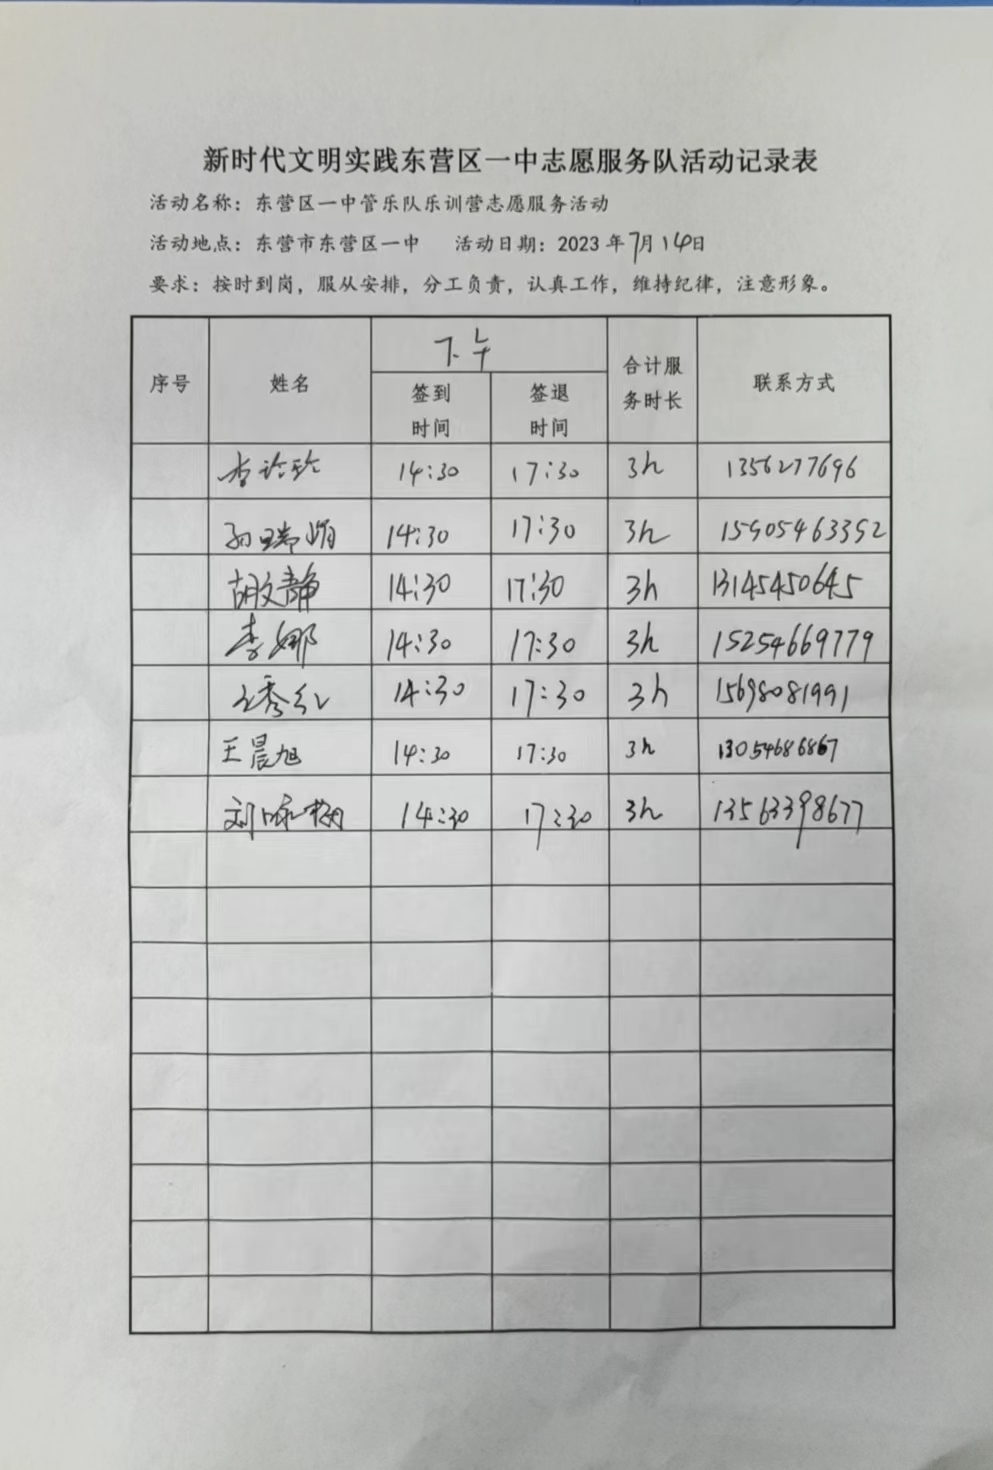 新时代文明实践东营区一中志愿服务队活动记录表
活动名称：东营区一中管乐队乐训营志愿服务活动
活动地点：东营市东营区一中 活动日期：2023 年7月14日
要求：按时到岗，服从安排，分工负责，认真工作，维持纪律，注意形象。
序号 姓名 下午 合计服务时长 联系方式
签到时间 签退时间
14:30 17:30 3h 1356277696
孙瑞娟 14:30 17:30 3h 15905463392
胡文静 14:30 17:30 3h 13145450645
李娜 14:30 17:30 3h 15254669779
王秀红 14:30 17:30 3h 15698081991
王晨旭 14:30 17:30 3h 13054686867
刘咏梅 14:30 17:30 3h 13563398677